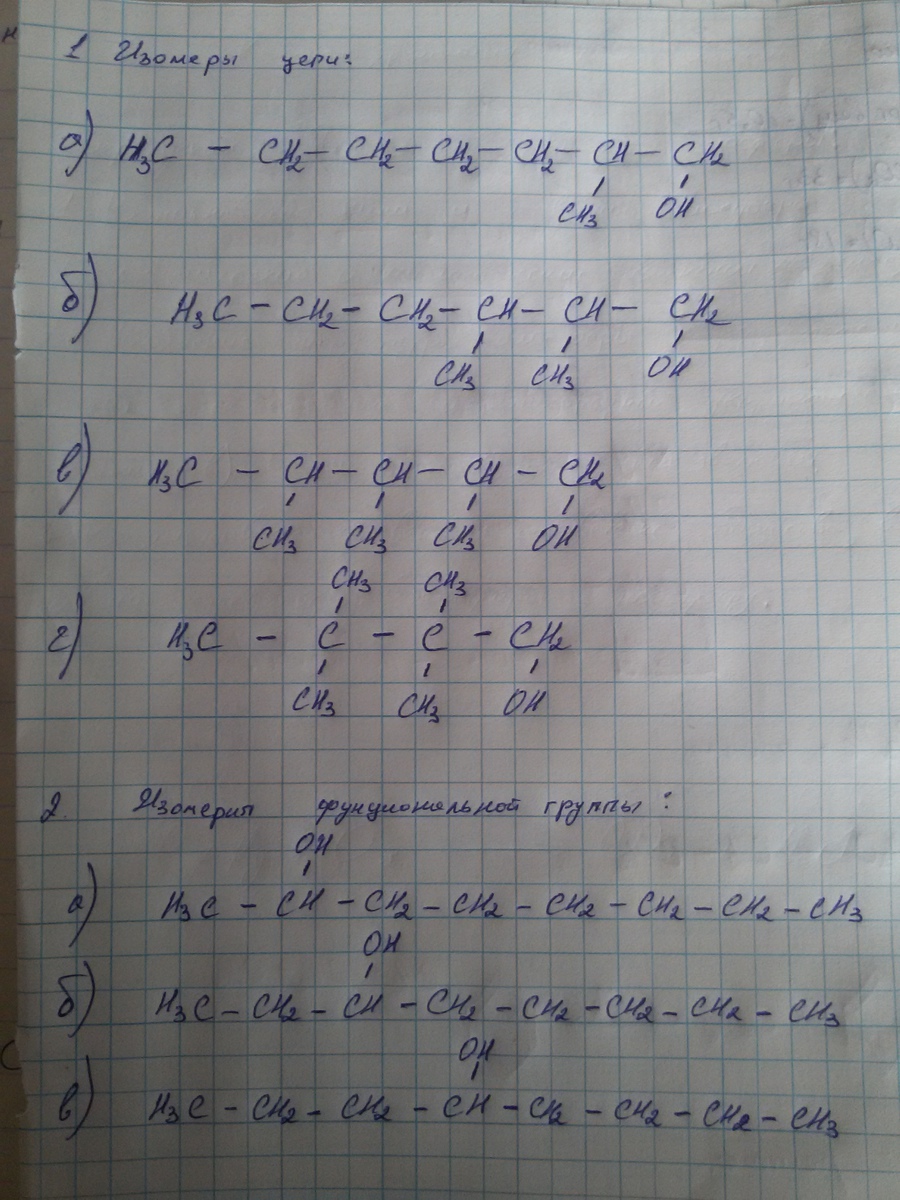 1 Изомеры цепи:
а) H₃C – CH₂ – CH₂ – CH₂ – CH₂ – CH – CH₂
CH₃ OH
б) H₃C – CH₂ – CH₂ – CH – CH – CH₂
CH₃ CH₃ OH
в) H₃C – CH – CH – CH – CH₂
CH₃ CH₃ CH₃ OH
CH₃ CH₃
г) H₃C – C – C – CH₂
CH₃ CH₃ OH
2. Изомерия фунциональной группы:
OH
а) H₃C – CH – CH₂ – CH₂ – CH₂ – CH₂ – CH₂ – CH₃
OH
б) H₃C – CH₂ – CH – CH₂ – CH₂ – CH₂ – CH₂ – CH₃
OH
в) H₃C – CH₂ – CH₂ – CH – CH₂ – CH₂ – CH₂ – CH₃